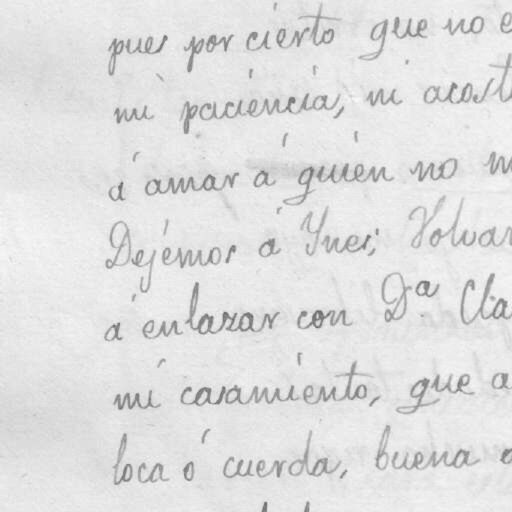 pues por cierto que no e
mi paciencia, ni acost
á amar á quién no m
Dejémos á Ynes; Volvam
á enlazar con D.ª Cla
mi casamiento, que a
loca ó cuerda, buena o